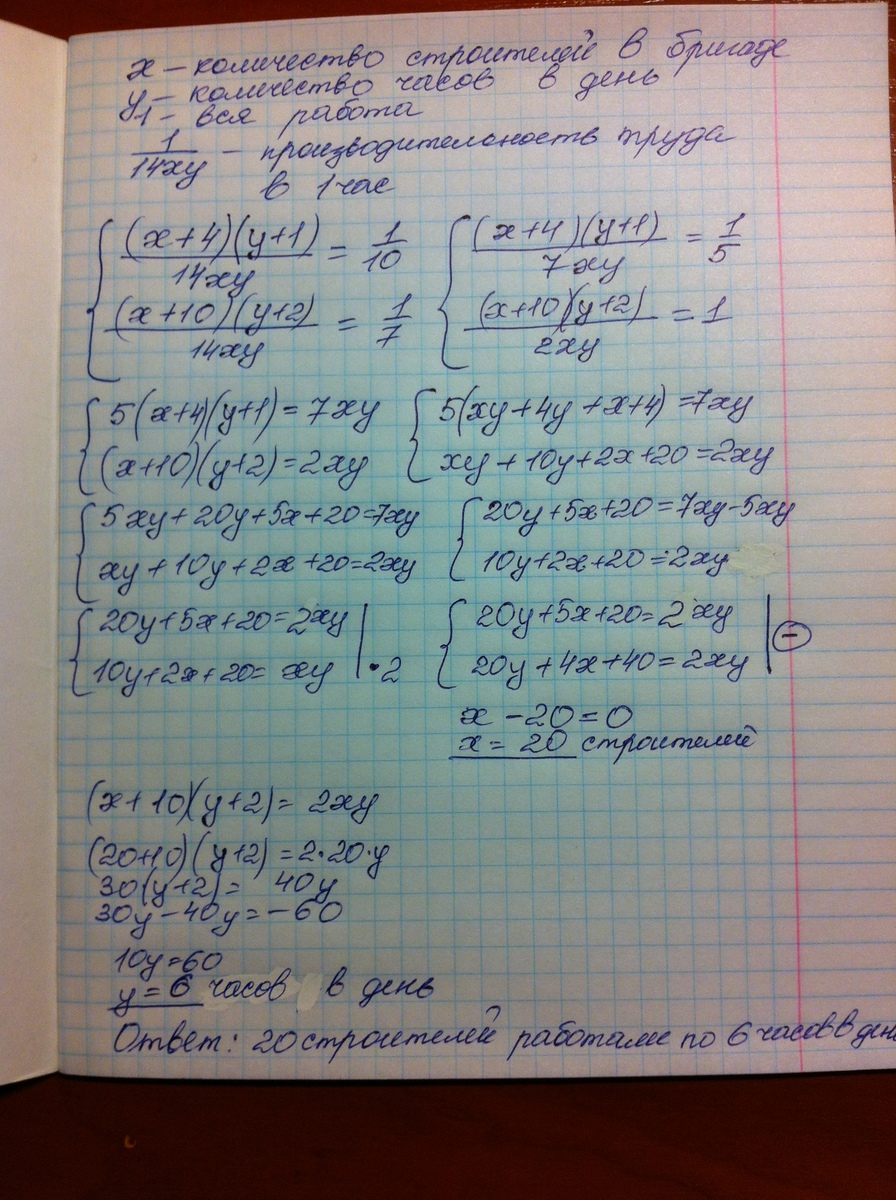 x – количество строителей в бригаде
y – количество часов в день
1 – вся работа
1/14xy – производительность труда
в 1 час
{ (x+4)(y+1)/14xy = 1/10 { (x+4)(y+1)/7xy = 1/5
(x+10)(y+2)/14xy = 1/7 (x+10)(y+2)/2xy = 1
{ 5(x+4)(y+1) = 7xy { 5(xy+4y+x+4) = 7xy
(x+10)(y+2) = 2xy xy+10y+2x+20 = 2xy
{ 5xy+20y+5x+20=7xy { 20y+5x+20=7xy-5xy
xy+10y+2x+20=2xy 10y+2x+20=2xy
{ 20y+5x+20=2xy | { 20y+5x+20=2xy | ⊖
10y+2x+20= xy | •2 20y+4x+40=2xy |
x – 20 = 0
x = 20 строителей
(x+10)(y+2) = 2xy
(20+10)(y+2) = 2•20•y
30(y+2) = 40y
30y – 40y = – 60
10y=60
y = 6 часов в день
Ответ: 20 строителей работали по 6 часов в день